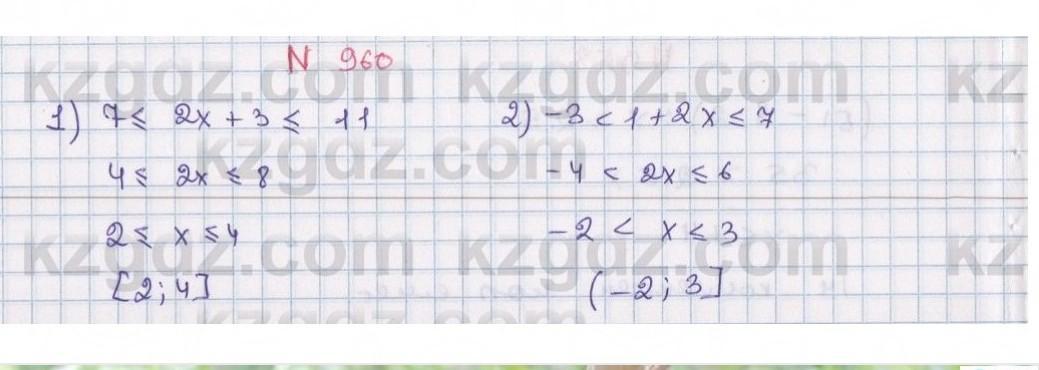 N 960
1) 7 ≤ 2x + 3 ≤ 11
4 ≤ 2x ≤ 8
2 ≤ x ≤ 4
[2; 4]
2) -3 < 1 + 2x ≤ 7
-4 < 2x ≤ 6
-2 < x ≤ 3
(-2; 3]
kzgdz.com kzgdz.com kz
kzgdz.com
kzgdz.com kzgdz.com kz
kzgdz.com